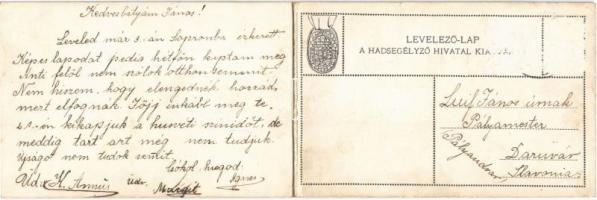 Kedves bátyám János!
Leveled már 3.-án Sopronba érkezett
Képes lapodat pedig hétfőn kaptam meg
Anti felől nem tudok otthon semmit.
Nem hiszem, hogy elengednék hozzád,
mert elfognák. Jőjj inkább meg te.
én kikapjuk a husvéti szünidőt, de
meddig tart azt még nem tudjuk.
Ujságot nem tudok semmit.
Csókol hugod:
Üdv. K. Annus üdv. Margit Ágnes
LEVELEZŐ-LAP
A HADSEGÉLYZŐ HIVATAL
János úrnak
Pályamester
Daruvár
Pályaudvar
Slavonia